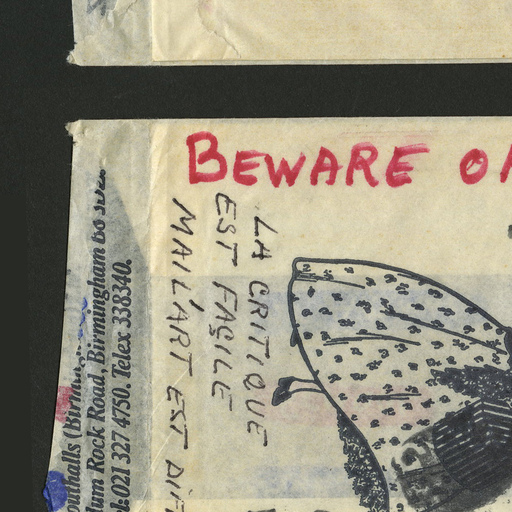 BEWARE O
LA CRITIQUE
EST FAÇILE
MAIL'ART EST DIF
outhalls (Birmin
lam Rock Road, Birmingham B8
el: 021 327 4750. Telex 338340.